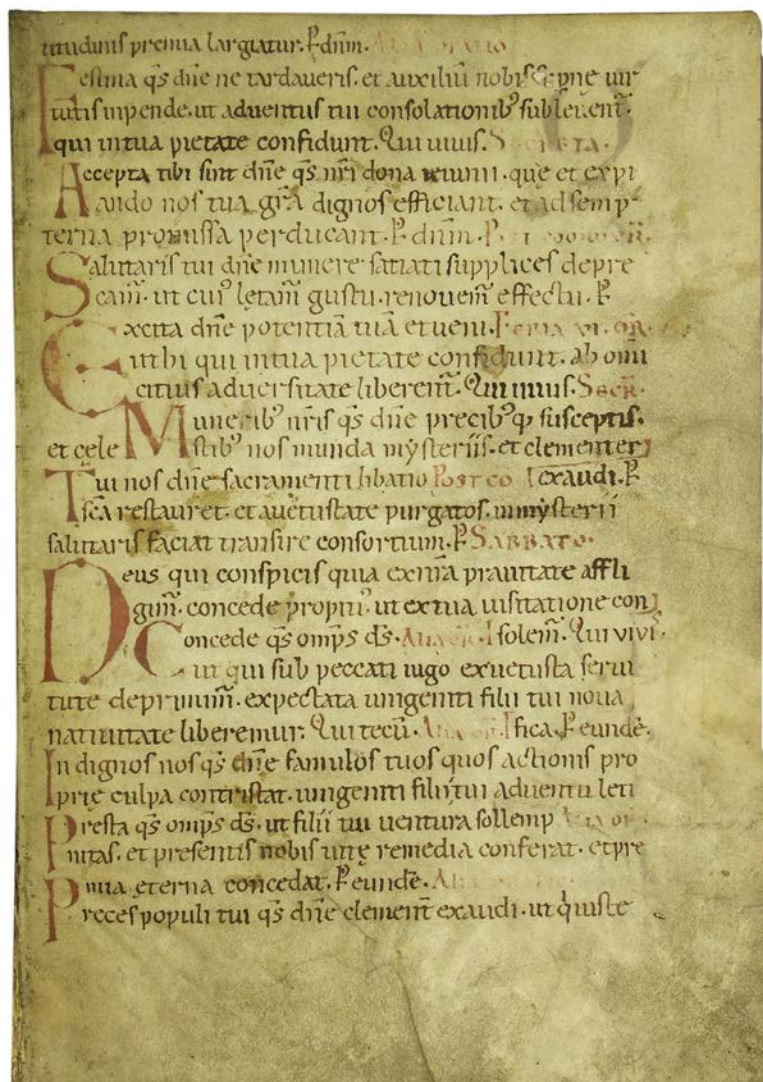 titudinis premia largiatur. P dnm. Alia oratio
Festina qs dne ne tardaueris. et auxiliu nobis supne uir
tutis inpende. ut aduentus tui consolationibꝰ subleuent̄.
qui in tua pietate confidunt. Qui uiuis. Secreta.
Accepta tibi sint dne qs nri dona ieiunii. que et expi
ando nos tua gr̄a dignos efficiant. et ad semp
terna promissa perducant. P dnm. P
Salutaris tui dne munere satiati supplices depre
cam̄. ut cuiꝰ letam̄ gustu. renouem̄ effectu. P
Excita dne potentiā tuā et ueni. Feria vi. or
ut hi qui in tua pietate confidunt. ab omi
citius aduersitate liberent̄. Qui uiuis. Secr.
Muneribꝰ nr̄is qs dne precibꝰq susceptis.
et celestibꝰ nos munda mysteriis. et clementer
Tui nos dne sacramenti libatio Post co exaudi. P
sc̄a restauret. et a uetustate purgatos. in mysterii
salutaris faciat transire consortium. P Sabbato.
Deus qui conspicis quia ex nr̄a prauitate affli
gim̄. concede propitiꝰ. ut ex tua uisitatione con
Concede qs omps ds. Alia or. solem̄. Qui vivi
ut qui sub peccati iugo ex uetusta serui
tute deprimim̄. expectata unigeniti filii tui noua
natiuitate liberemur. Qui tecū. Alia or. ifica. P eundē.
Indignos nos qs dne famulos tuos quos actionis pro
prie culpa contristat. unigeniti filii tui aduentu leti
Presta qs omps ds. ut filii tui uentura sollemp Alia or.
nitas. et presentis nobis uitę remedia conferat. et pre
mia eterna concedat. P eundē. Al
Preces populi tui qs dne clement̄ exaudi. ut qui iuste